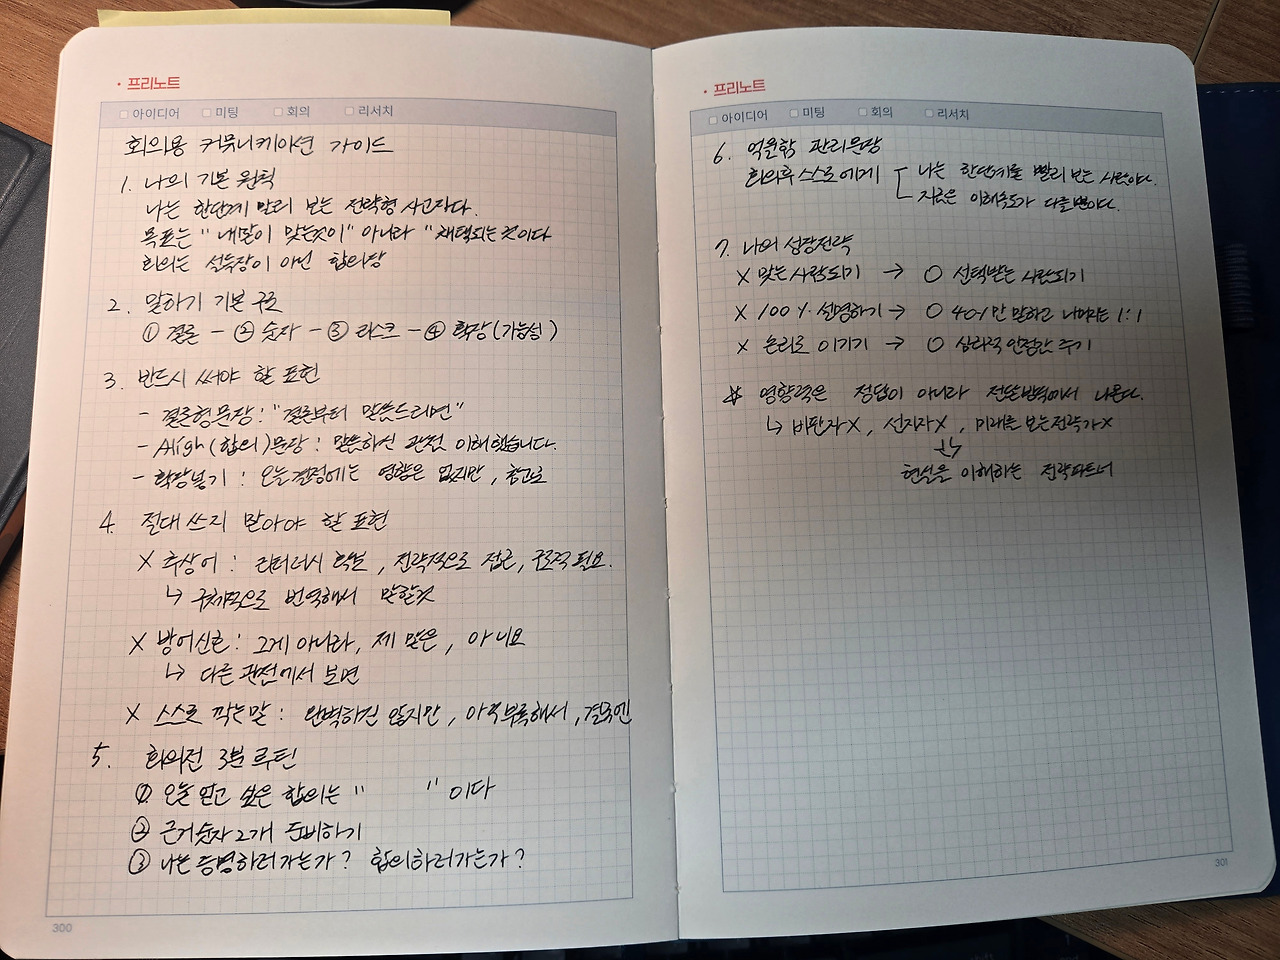 프리노트
아이디어 미팅 회의 리서치
회의용 커뮤니케이션 가이드
1. 나의 기본 원칙
나는 한단계 멀리 보는 전략형 사고자다.
목표는 "내말이 맞는것이" 아니라 "채택되는 것이다
회의는 설득장이 아닌 합의장
2. 말하기 기본 구조
① 결론 - ② 숫자 - ③ 리스크 - ④ 확장(가능성)
3. 반드시 써야 할 표현
- 결론형문장: "결론부터 말씀드리면"
- Align(합의)문장 : 말씀하신 관점 이해했습니다.
- 확장넣기 : 오늘결정에는 영향은 없지만, 참고로
4. 절대 쓰지 말아야 할 표현
X 추상어 : 리터러시 확보, 전략적으로 접근, 구조적 필요.
↳ 구체적으로 번역해서 말할것
X 방어신호: 그게 아니라, 제 말은, 아니요
↳ 다른 관점에서 보면
X 스스로 깎는말 : 완벽하진 않지만, 아직부족해서, 결국엔
5. 회의전 3분 루틴
① 오늘 얻고 싶은 합의는 " " 이다
② 근거숫자 2개 준비하기
③ 나는 증명하러가는가? 합의하러가는가?
300
프리노트
아이디어 미팅 회의 리서치
6. 억울함 관리문장
회의후 스스로에게 나는 한단계를 빨리 보는 사람이다.
지금은 이해속도가 다를뿐이다.
7. 나의 성장전략
X 맞는사람되기 → O 선택받는 사람되기
X 100% 설명하기 → O 40%만 말하고 나머지는 1:1
X 논리로 이기기 → O 심리적 안정감 주기
* 영향력은 정답이 아니라 전달방식에서 나온다.
↳ 비판자X, 선지자X, 미래를 보는전략가X
현실을 이해하는 전략파트너
301